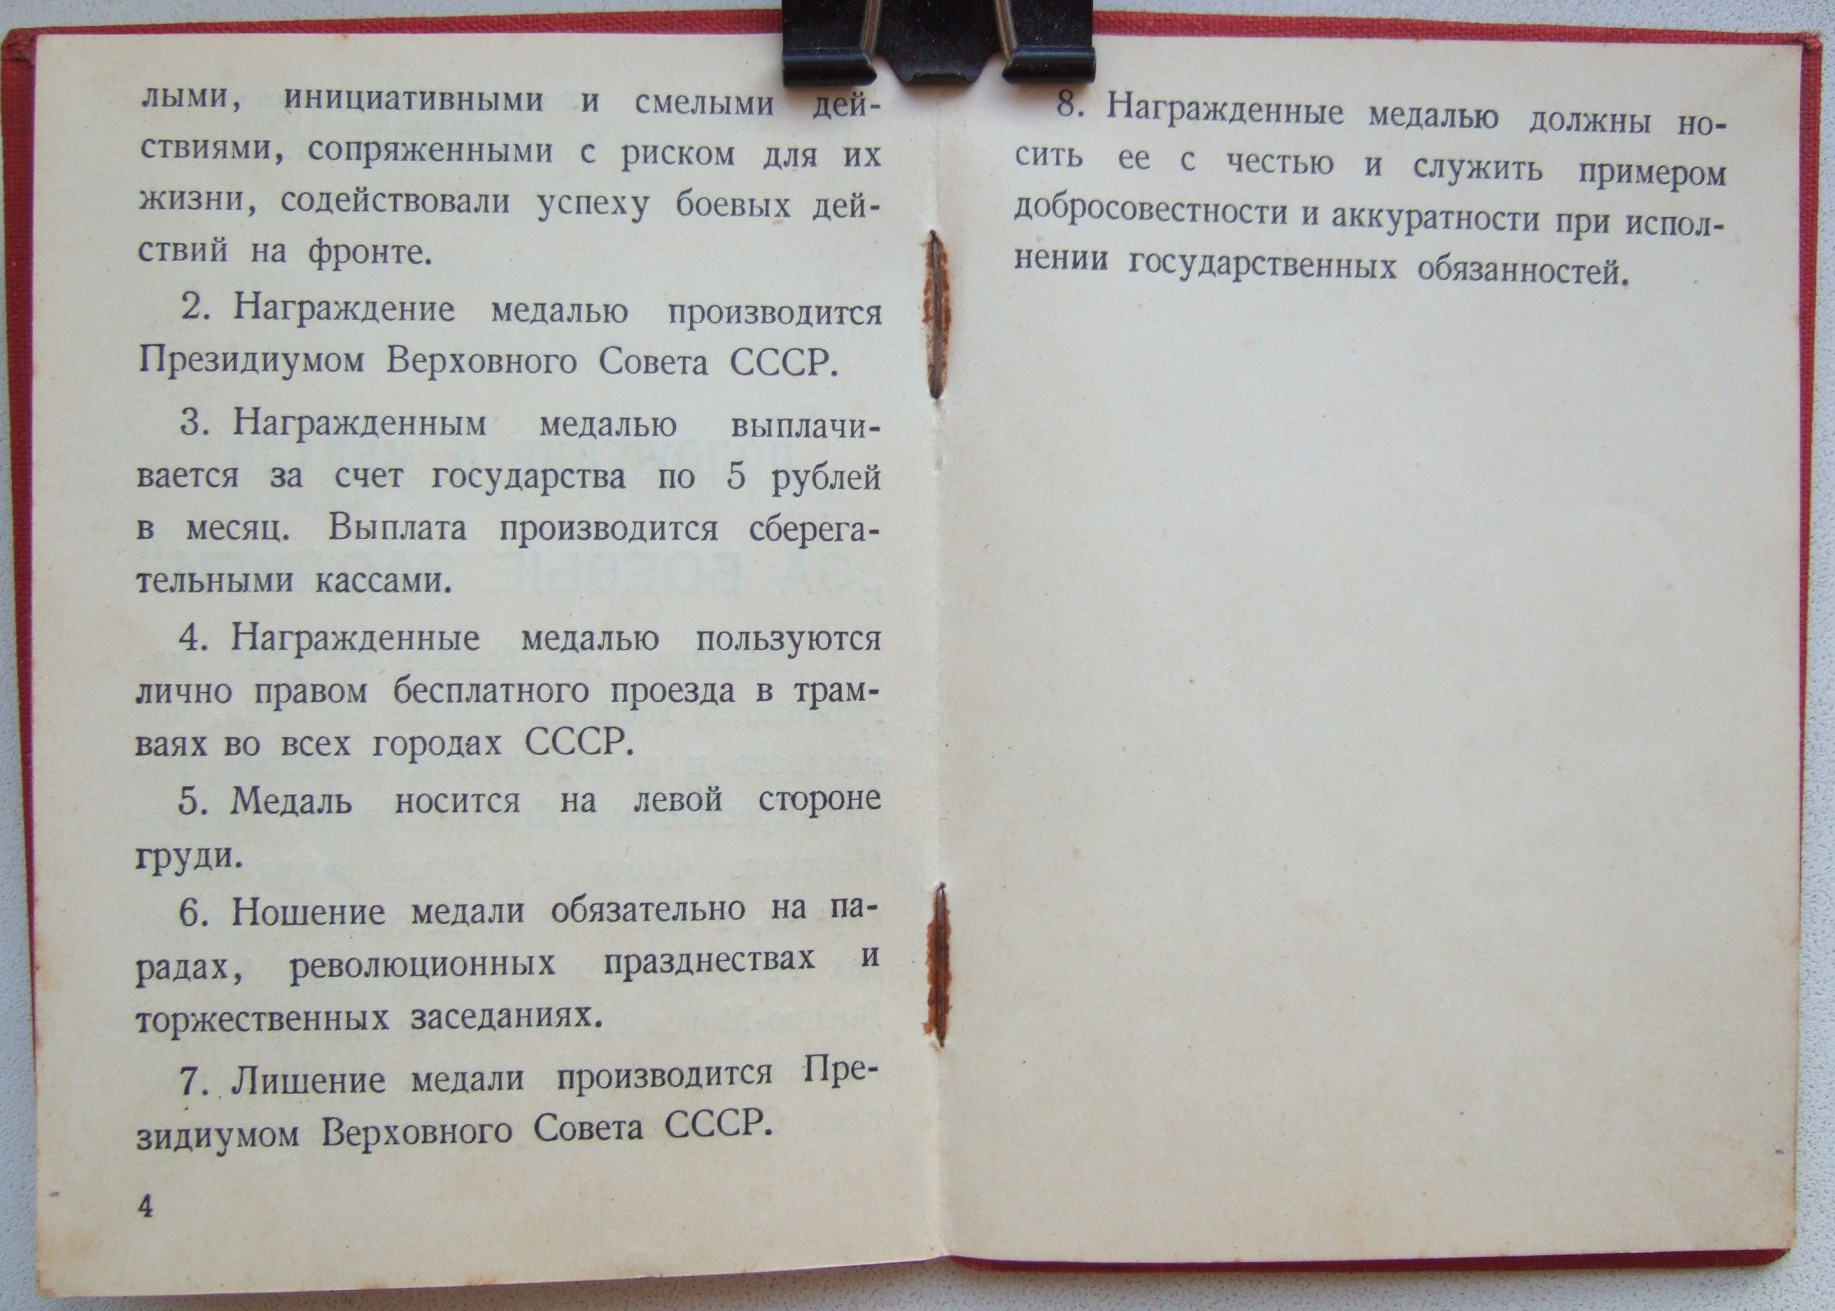 лыми, инициативными и смелыми дей-
ствиями, сопряженными с риском для их
жизни, содействовали успеху боевых дей-
ствий на фронте.
2. Награждение медалью производится
Президиумом Верховного Совета СССР.
3. Награжденным медалью выплачи-
вается за счет государства по 5 рублей
в месяц. Выплата производится сберега-
тельными кассами.
4. Награжденные медалью пользуются
лично правом бесплатного проезда в трам-
ваях во всех городах СССР.
5. Медаль носится на левой стороне
груди.
6. Ношение медали обязательно на па-
радах, революционных празднествах и
торжественных заседаниях.
7. Лишение медали производится Пре-
зидиумом Верховного Совета СССР.
4
8. Награжденные медалью должны но-
сить ее с честью и служить примером
добросовестности и аккуратности при испол-
нении государственных обязанностей.